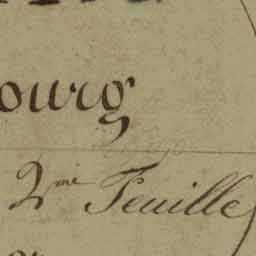 ourg
2me Feuille